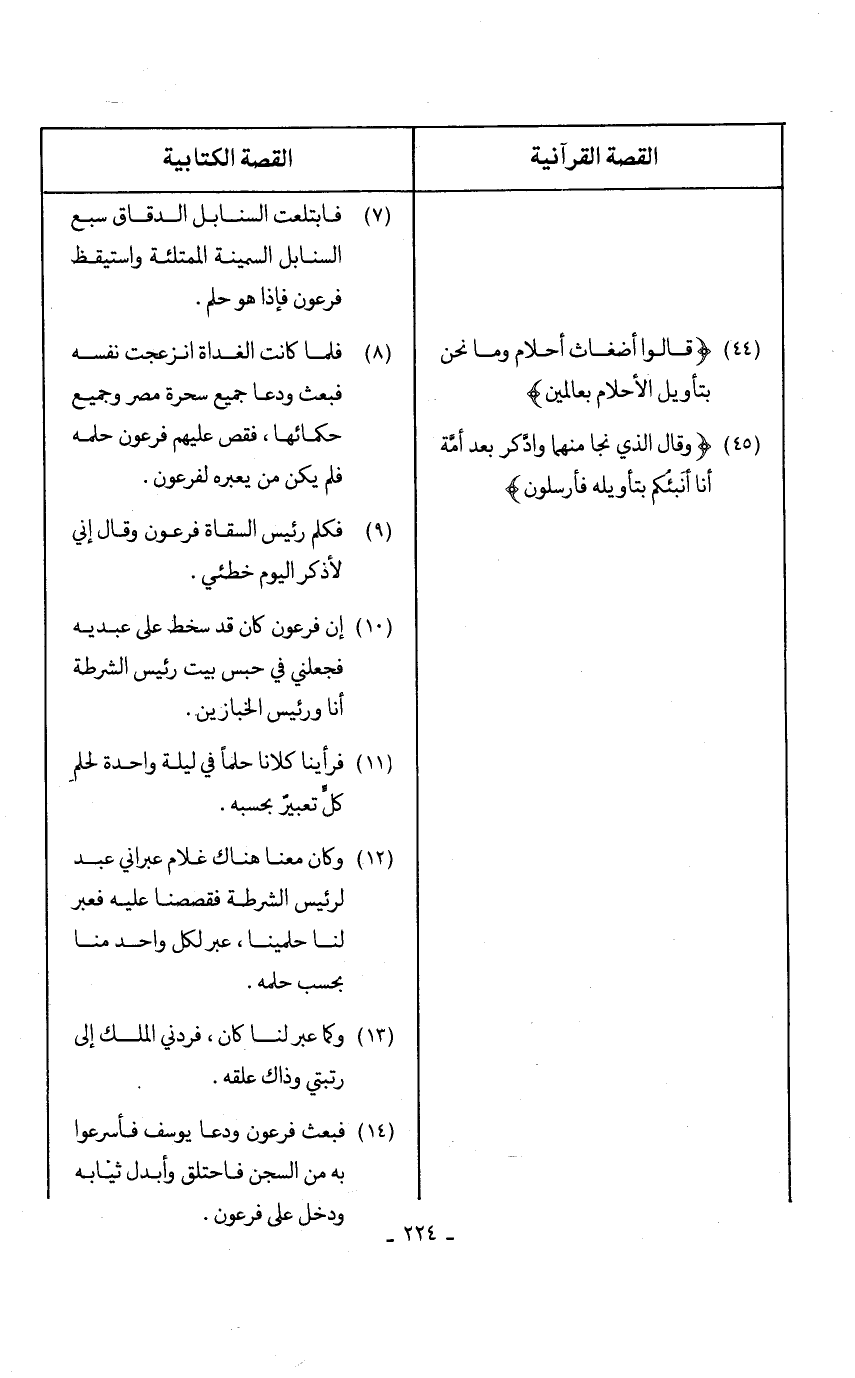 القصة القرآنية
القصة الكتابية
(٤٤) ﴿ قالوا أضغاث أحلام وما نحن
بتأويل الأحلام بعالمين ﴾
(٤٥) ﴿ وقال الذي نجا منهما وادَّكر بعد أمَّة
أنا أنَبئُكم بتأويله فأرسلون ﴾
(٧) فابتلعت السنابل الدقاق سبع
السنابل السمينة الممتلئة واستيقظ
فرعون فإذا هو حلم .
(٨) فلما كانت الغداة انزعجت نفسه
فبعث ودعا جميع سحرة مصر وجميع
حكمائها ، فقص عليهم فرعون حلمه
فلم يكن من يعبره لفرعون .
(٩) فكلم رئيس السقاة فرعون وقال إني
لأذكر اليوم خطئي .
(١٠) إن فرعون كان قد سخط على عبديه
فجعلني في حبس بيت رئيس الشرطة
أنا ورئيس الخبازين .
(١١) فرأينا كلانا حلماً في ليلة واحدة لحلمِ
كلٍّ تعبيرٌ بحسبه .
(١٢) وكان معنا هناك غلام عبراني عبد
لرئيس الشرطة فقصصنا عليه فعبر
لنا حلمينا ، عبر لكل واحد منا
بحسب حلمه .
(١٣) وكما عبر لنا كان ، فردني الملك إلى
رتبتي وذاك علقه .
(١٤) فبعث فرعون ودعا يوسف فأسرعوا
به من السجن فاحتلق وأبدل ثيابه
ودخل على فرعون .
- ٢٢٤ -